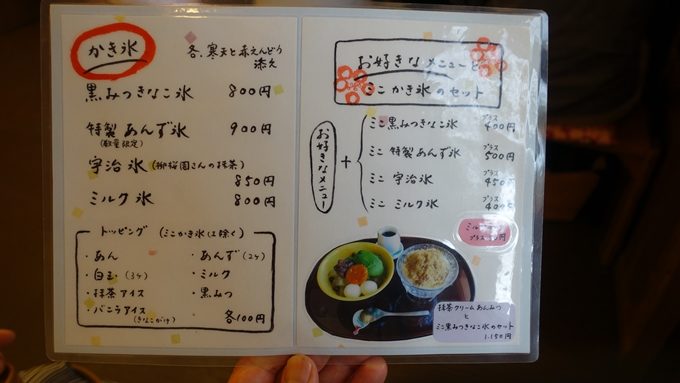 かき氷
各、寒天と赤えんどう
添え
黒みつきなこ氷 800円
特製あんず氷 900円
(数量限定)
宇治氷 (柳桜園さんの抹茶)
850円
ミルク氷 800円
トッピング (ミニかき氷は除く)
・あん ・あんず(2ケ)
・白玉(3ケ) ・ミルク
・抹茶アイス ・黒みつ
・バニラアイス
(きなこがけ) 各100円
お好きなメニューと
ミニかき氷のセット
お好きなメニュー
+
ミニ黒みつきなこ氷 プラス400円
ミニ 特製あんず氷 プラス500円
ミニ 宇治氷 プラス450円
ミニ ミルク氷 プラス400円
ミル
プラス 円
抹茶クリームあんみつ
と
ミニ黒みつきなこ氷のセット
1.150円